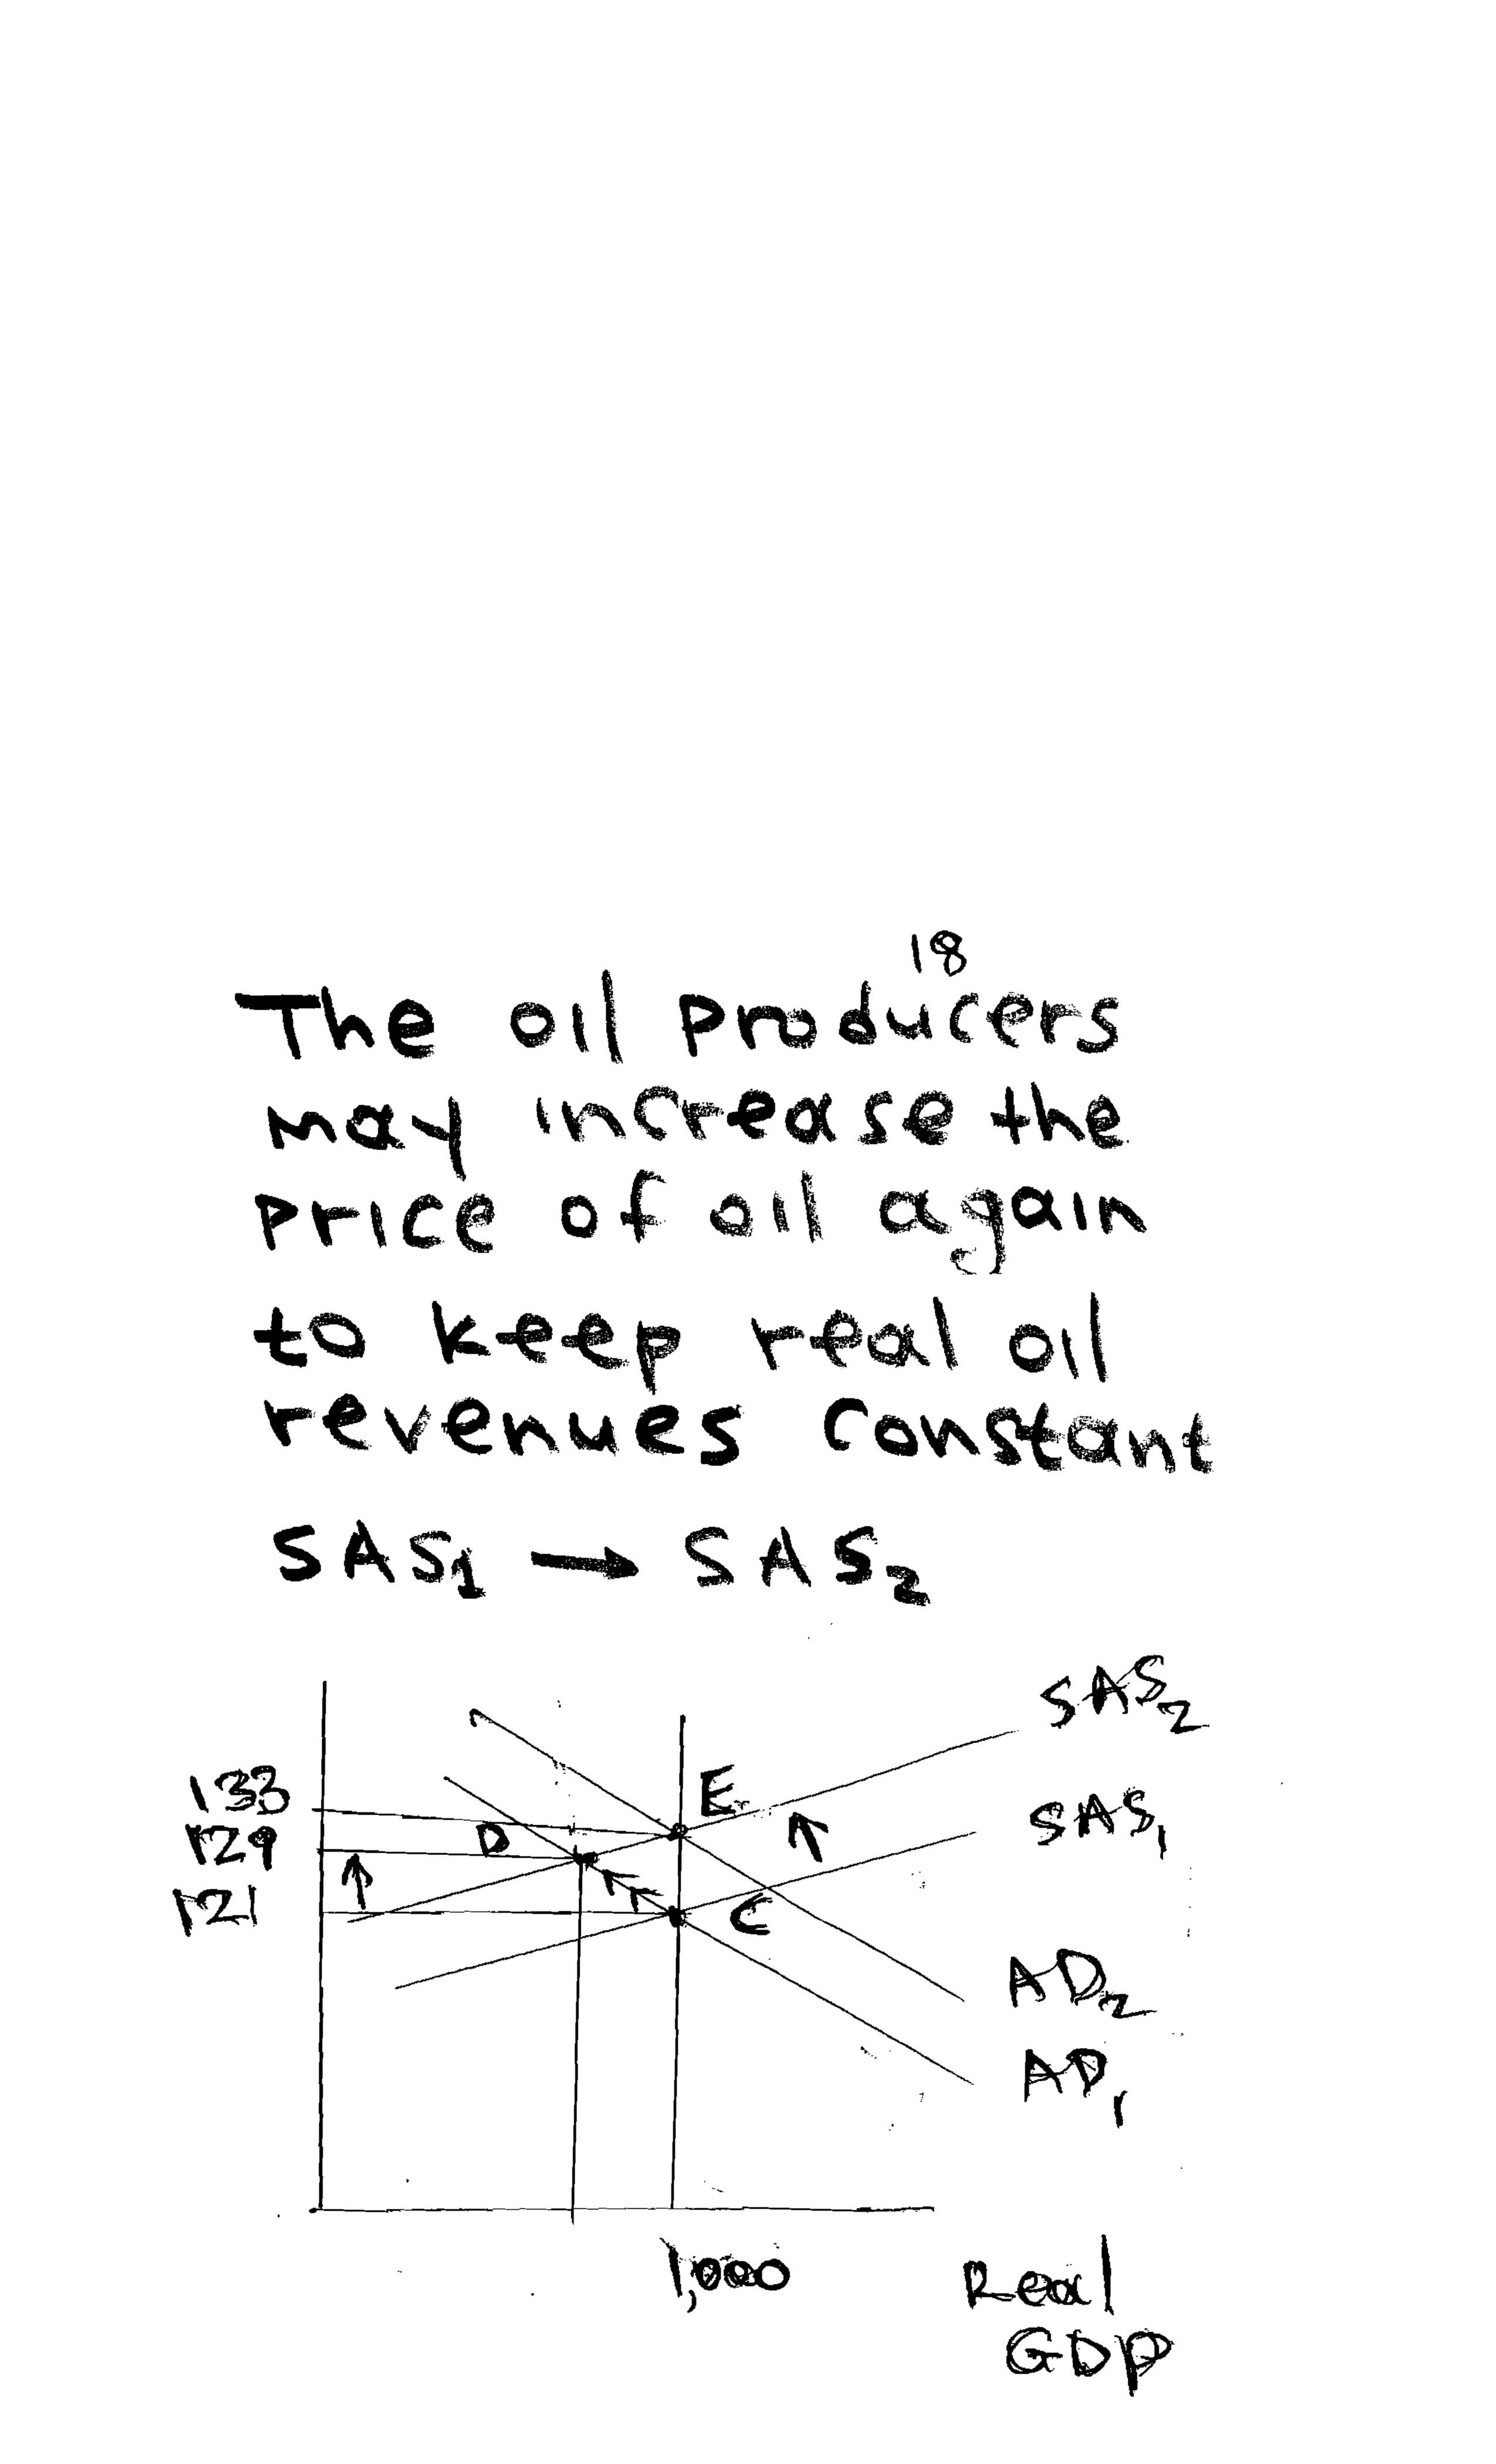 18
The oil producers
may increase the
price of oil again
to keep real oil
revenues constant
SAS1 → SAS2
SAS2
133
E
SAS1
129
D
121
C
AD2
AD1
1,000
Real
GDP